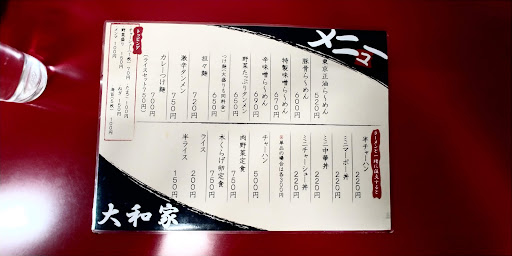 メニュー
東京正油らーめん 550円
豚骨らーめん 600円
特製味噌らーめん 670円
辛味噌らーめん 690円
野菜たっぷりタンメン 650円
つけ麺(大盛りも同料金) 650円
担々麺 720円
激辛タンメン 750円
カレーつけ麺 700円
(ライスセット750円)
トッピング
野菜盛り 150円
メンマ 100円
ラーメンと一緒に注文すると
半チャーハン 220円
ミニマーボー丼 220円
ミニ中華丼 220円
ミニチャーシュー丼 220円
※単品の場合は各300円
チャーハン 500円
肉野菜定食 750円
木くらげ卵定食 750円
ライス 200円
半ライス 150円
大和家